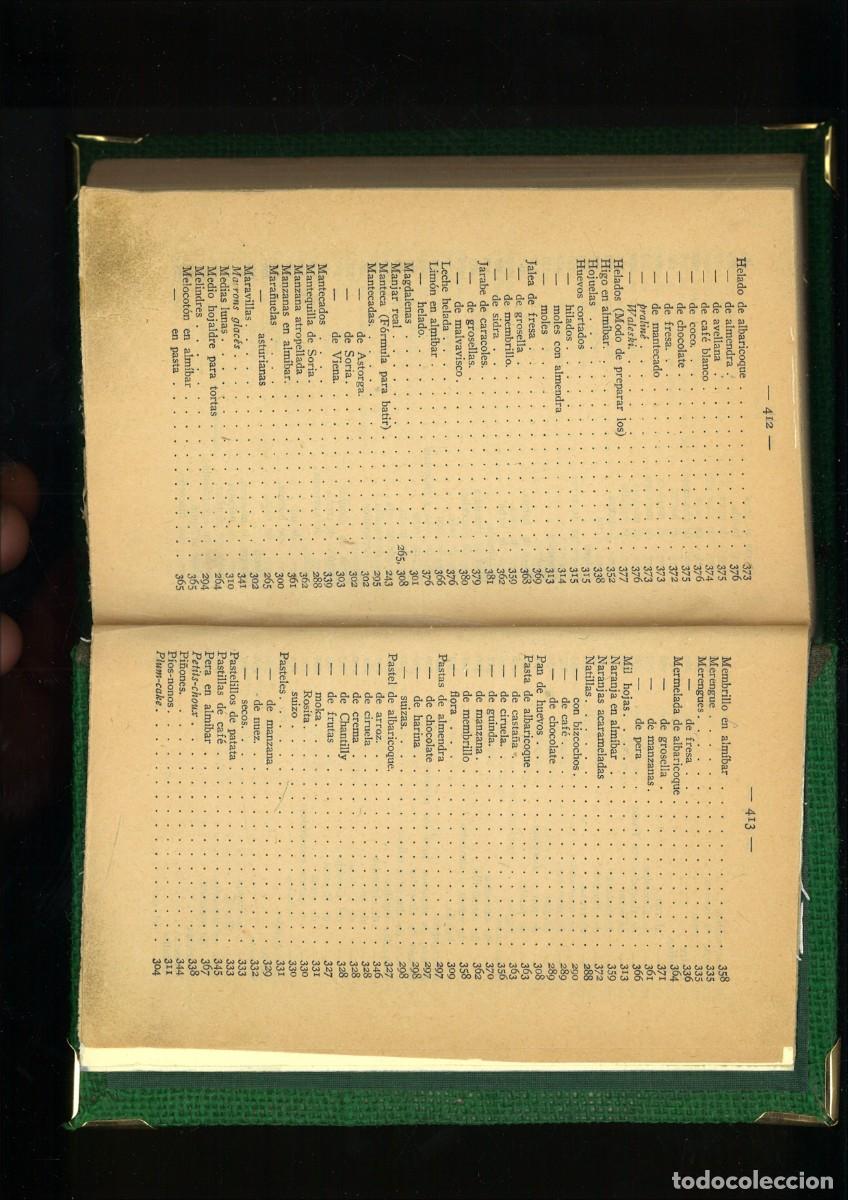 — 412 —
Helado de albaricoque . . . 373
— de almendra . . . 376
— de avellana . . . 375
— de café blanco . . . 374
— de coco . . . 376
— de chocolate . . . 375
— de fresa . . . 372
— de mantecado . . . 373
— praliné . . . 373
— Waleski . . . 376
Helados (Modo de preparar los) . . . 377
Higo en almíbar . . . 352
Hojuelas . . . 338
Huevos cortados . . . 315
— hilados . . . 315
— moles con almendra . . . 314
— moles . . . 313
Jalea de fresa . . . 369
— de grosella . . . 368
— de membrillo . . . 359
— de sidra . . . 362
Jarabe de caracoles . . . 381
— de grosellas . . . 379
— de malvavisco . . . 380
Leche helada . . . 376
Limón en almíbar . . . 366
— helado . . . 376
Magdalenas . . . 301
Manjar real . . . 265, 308
Manteca (Fórmula para batir) . . . 243
Mantecadas . . . 295
— de Astorga . . . 302
— de Soria . . . 302
— de Viena . . . 303
Mantecados . . . 339
Mantequilla de Soria . . . 288
Manzana atropellada . . . 362
Manzanas en almíbar . . . 361
Marañuelas . . . 300
— asturianas . . . 265
Maravillas . . . 302
Marrons glacés . . . 341
Medias lunas . . . 310
Medio hojaldre para tortas . . . 264
Melindres . . . 294
Melocotón en almíbar . . . 365
— en pasta . . . 365
— 413 —
Membrillo en almíbar . . . 358
Merengue . . . 335
Merengues . . . 335
— de fresa . . . 336
Mermelada de albaricoque . . . 364
— de grosella . . . 371
— de manzanas . . . 361
— de pera . . . 366
Mil hojas . . . 313
Naranja en almíbar . . . 359
Naranjas acarameladas . . . 372
Natillas . . . 288
— con bizcochos . . . 290
— de café . . . 289
— de chocolate . . . 289
Pan de huevos . . . 308
Pasta de albaricoque . . . 363
— de castaña . . . 363
— de ciruela . . . 356
— de guinda . . . 370
— de manzana . . . 362
— de membrillo . . . 358
— flora . . . 309
Pastas de almendra . . . 297
— de chocolate . . . 297
— de harina . . . 298
— suizas . . . 298
Pastel de albaricoque . . . 327
— de arroz . . . 346
— de ciruela . . . 328
— de crema . . . 328
— de Chantilly . . . 328
— de frutas . . . 327
— moka . . . 331
— Rosita . . . 330
— suizo . . . 330
Pasteles . . . 331
— de manzana . . . 329
— de nuez . . . 332
— secos . . . 333
Pastelillos de patata . . . 333
Pastillas de café . . . 345
Pera en almíbar . . . 367
Petits-choux . . . 338
Piñones . . . 344
Píos-nonos . . . 311
Plum-cake . . . 304
todocoleccion